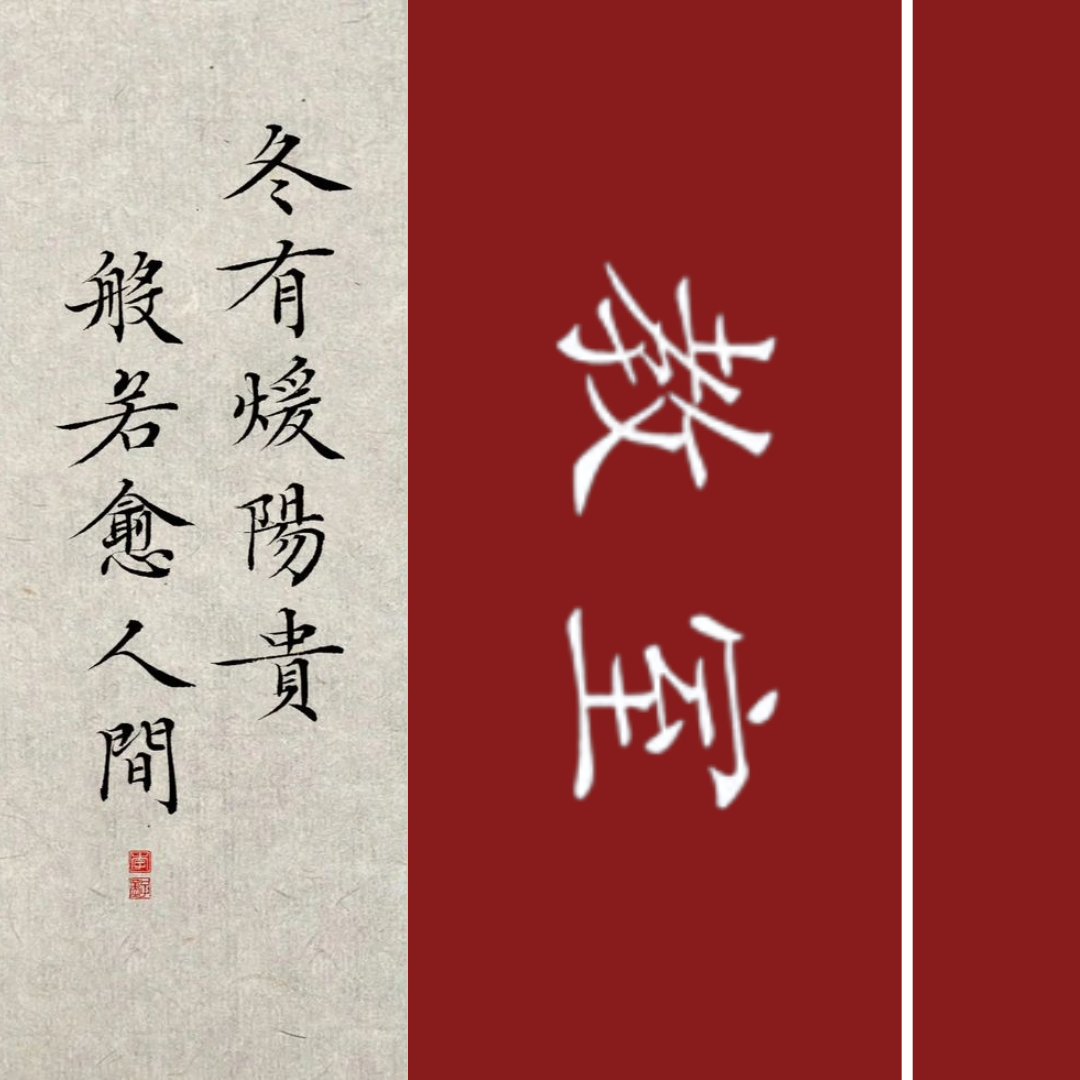 冬有煖陽貴
般若愈人間
教室